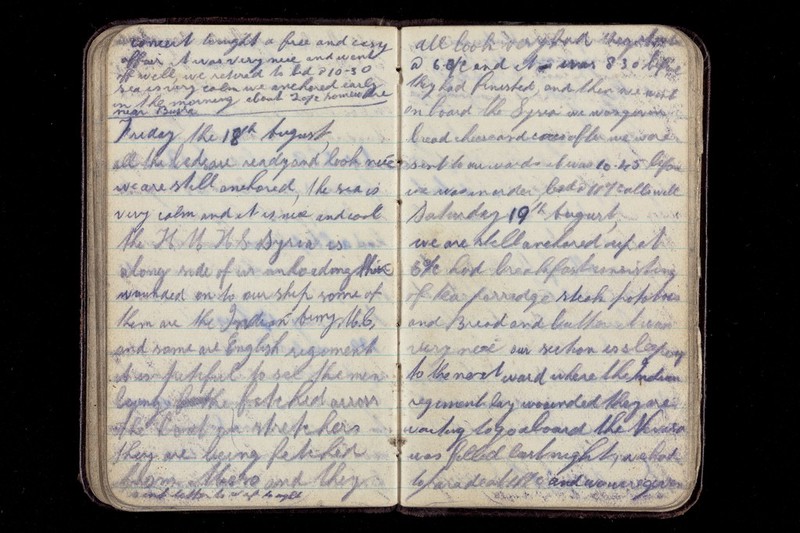 concert tonight a free and easy
affair it was very nice and went
off well, we retired to bed 10-30
sea is very calm we anchored early
in the morning about 2 o/c somewhere
near Busra
Friday the 18th August,
all the beds are ready and look nice
we are still anchored, the sea is
very calm and it is nice and cool
the H M H S Syria is
along side of us unloading their
wounded on to our ship some of
them are the Indian being
and some are English regiment
it is pitiful to see the men
being fetched across
the boat on stretchers
they are being fetched
from and they
all look very bad they
6 o/c and it was 8.30 before
they had finished, and then we went
on board the Syria we was given
bread cheese and cocoa after we were
sent to our wards it was 10.45 before
we was in order bed 11 o/c all well
Saturday 19th August,
we are still anchored up at
6 o/c had breakfast consisting
of tea porridge steak potatoes
and Bread and butter it was
very nice our section is sleeping
to the next ward where the Indian
regiment lay wounded they are
waiting to go aboard the
was filled last night, we had
to parade at and we were given